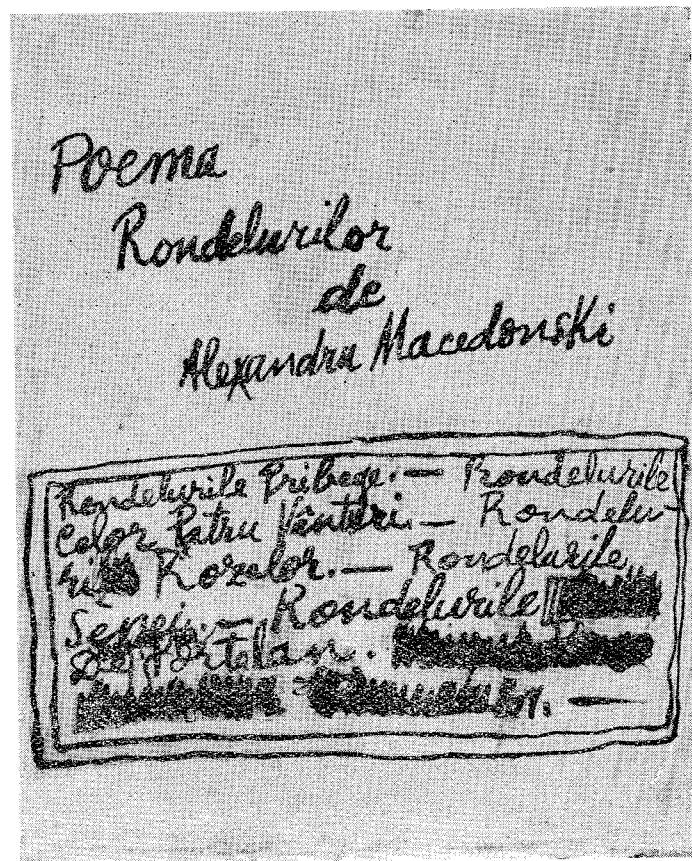 Poema
Rondelurilor
de
Alexandru Macedonski
Rondelurile Pribege. — Rondelurile
Celor Patru Vânturi. — Rondelu-
rile Rozelor. — Rondelurile
Senei. — Rondelurile
De Porţelan.